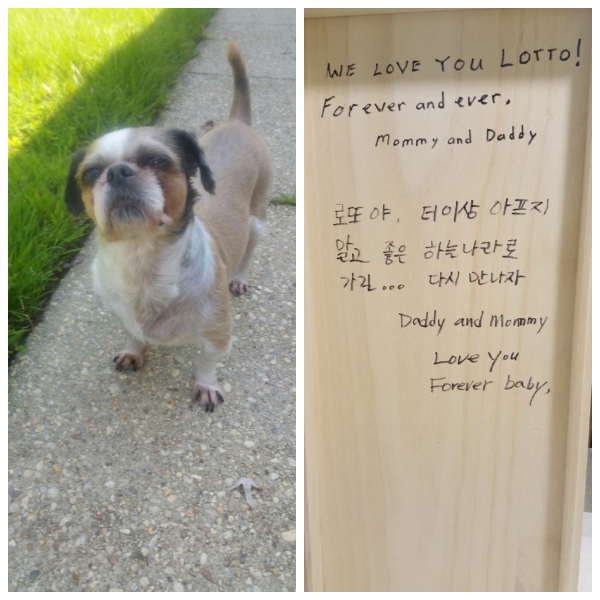 WE LOVE YOU LOTTO!
Forever and ever.
Mommy and Daddy
로또야, 더이상 아프지
말고 좋은 하늘나라로
가길... 다시 만나자
Daddy and Mommy
Love you
Forever baby,